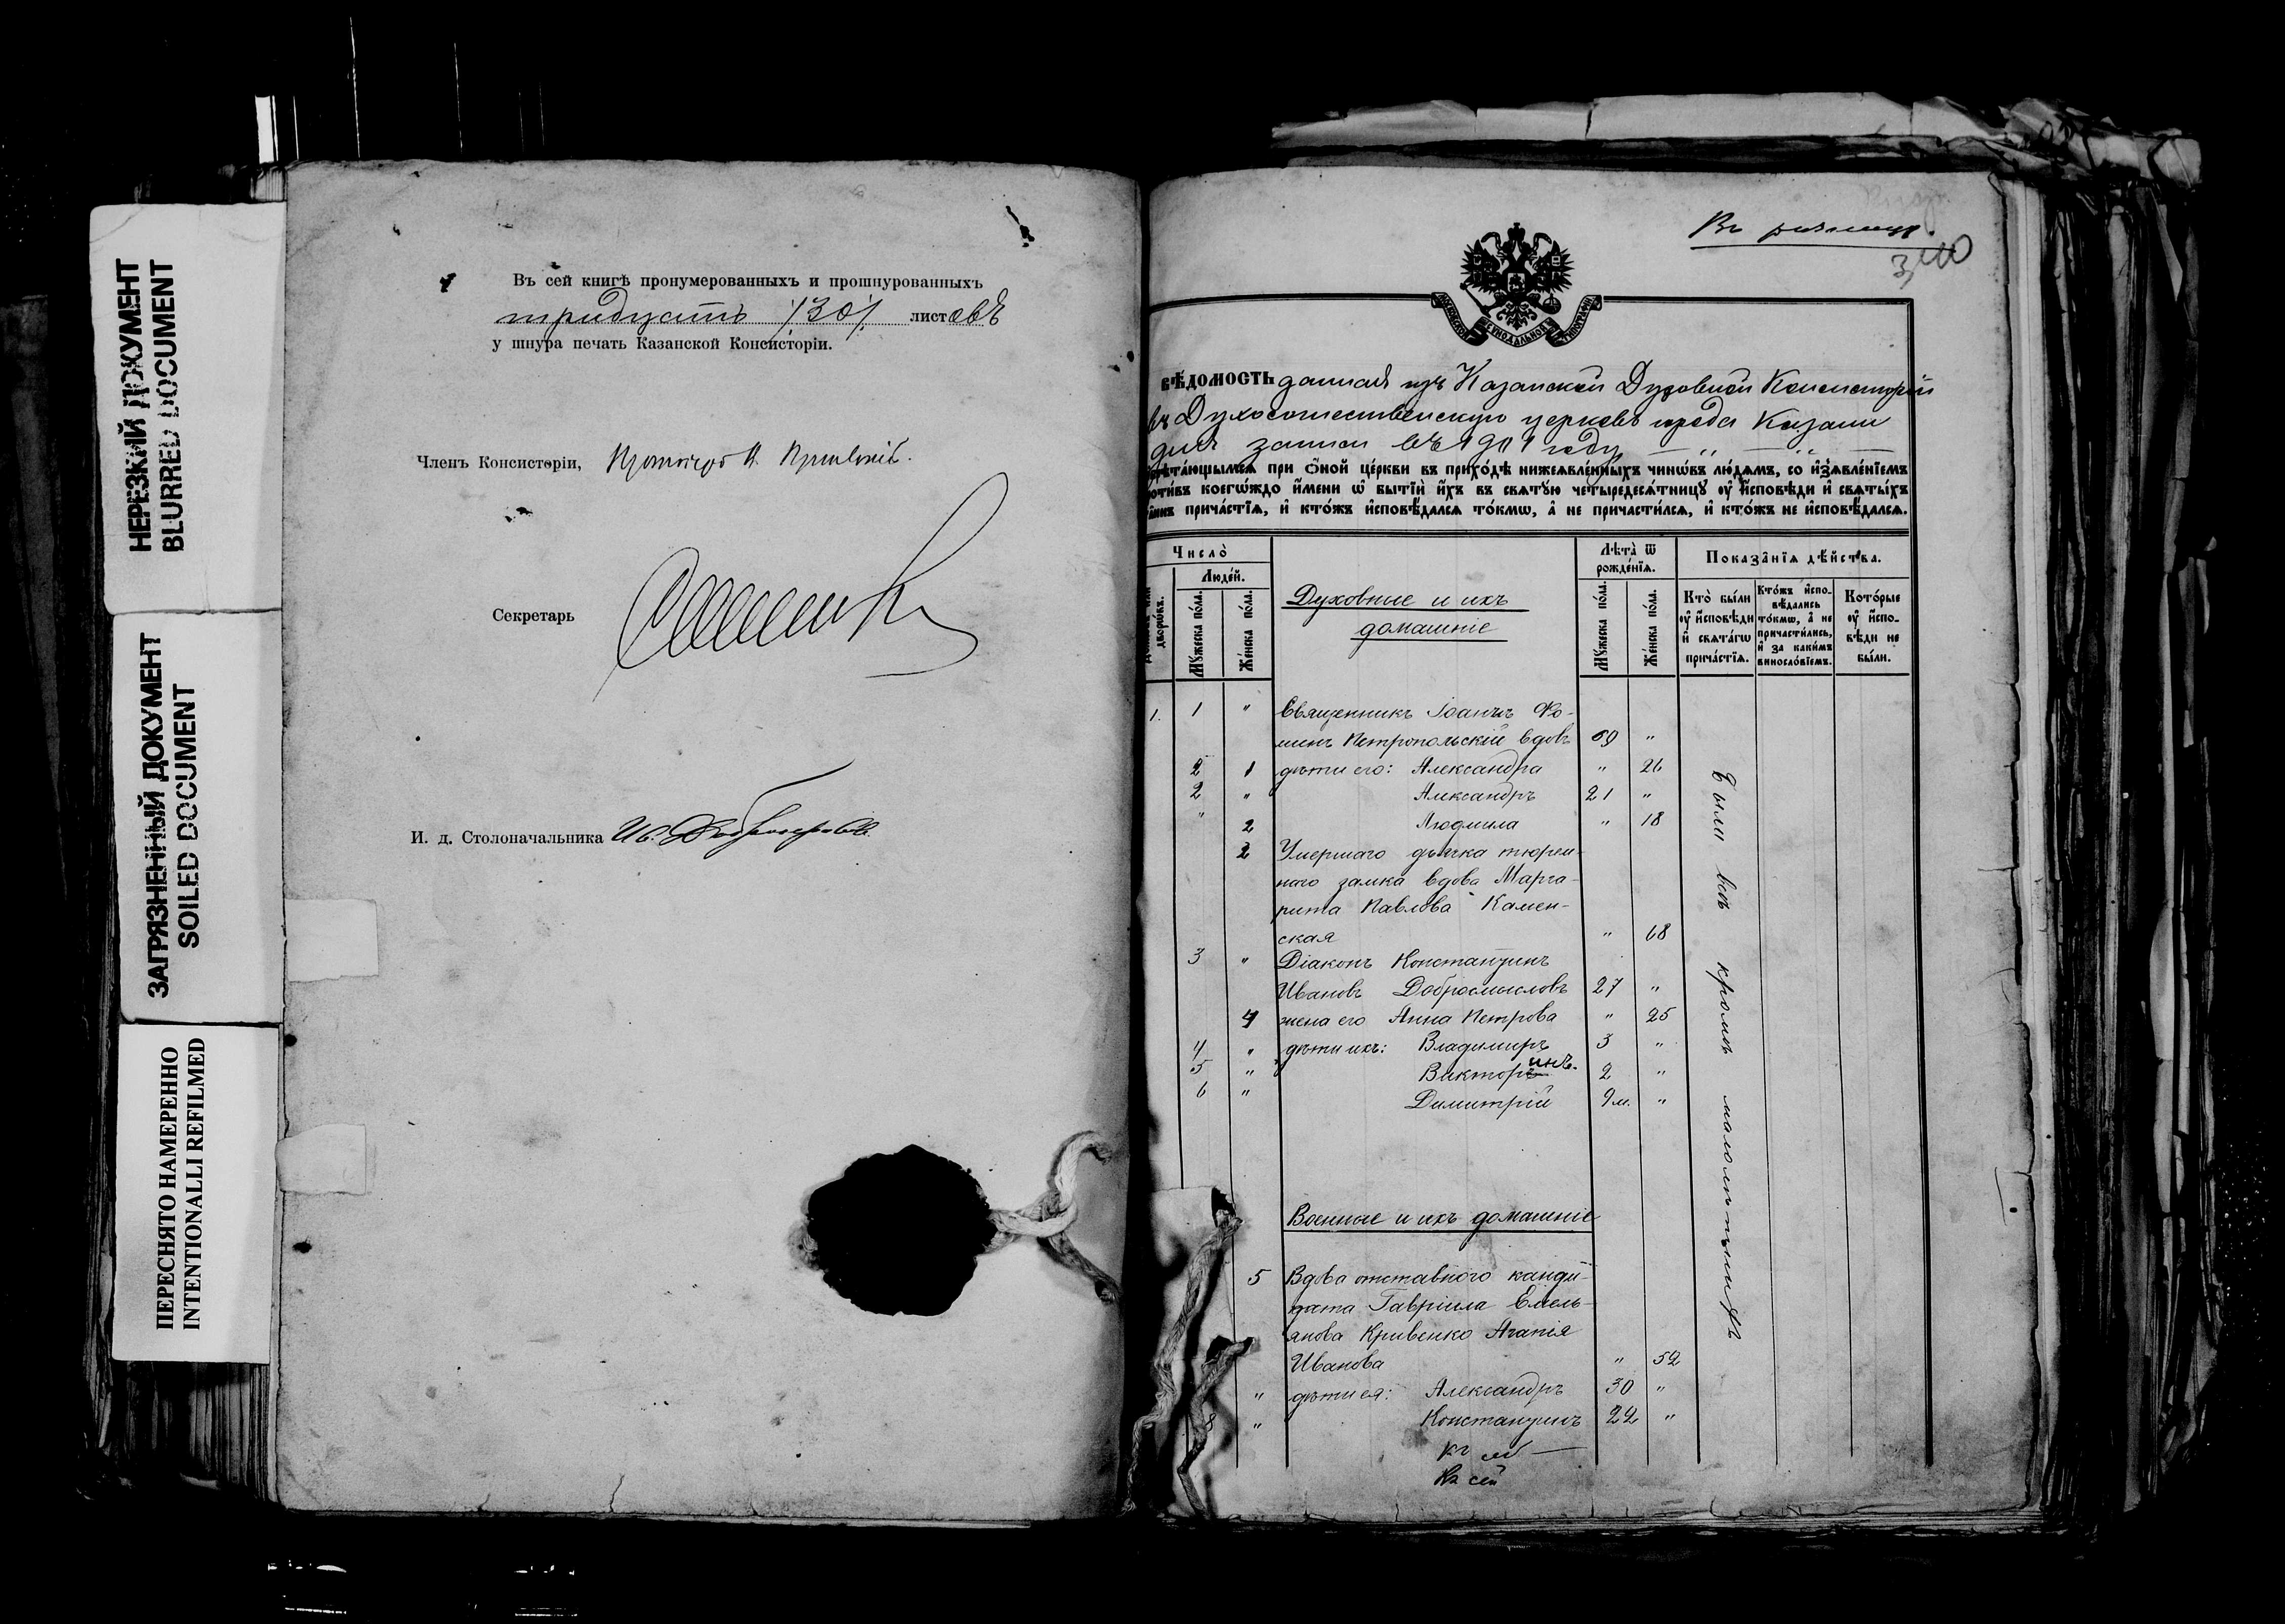 НЕРЕЗКИЙ ДОКУМЕНТ
BLURRED DOCUMENT
ЗАГРЯЗНЕННЫЙ ДОКУМЕНТ
SOILED DOCUMENT
ПЕРЕСНЯТО НАМЕРЕННО
INTENTIONALLI REFILMED
Въ сей книгѣ пронумерованныхъ и прошнурованныхъ
тридцать /30/ листовъ
у шнура печать Казанской Консисторіи.
Членъ Консисторіи,
Секретарь
И. д. Столоначальника Ив.
Въ
ВѢДОМОСТЬ данная изъ Казанской Духовной Консисторіи
въ Духосошественскую церковь города Казани
для записи въ 1901 году
при о҆́ной це́ркви въ прихо́дѣ нижеѧвле́нныхъ чинѡ́въ лю́дямъ, со и҆з̾ѧвле́нїемъ
коегѡ́ждо и҆́мени ѡ҆ бытїѝ и҆́хъ въ свѧту́ю четыредесѧ́тницу ᲂу҆ и҆́сповѣди и҆ свѧты́хъ
прича́стїѧ, и҆ кто́жъ и҆сповѣ́далсѧ то́кмѡ, а҆ не причасти́лсѧ, и҆ кто́жъ не и҆сповѣ́далсѧ.
Число̀
Люде́й.
дворѡ́въ.
Му́жеска по́ла.
Же́нска по́ла.
Духовные и ихъ
домашніе
Лѣта̀ ѿ
рожде́нїѧ.
Му́жеска по́ла.
Же́нска по́ла.
Показа̂нїѧ дѣ́йства.
Кто̀ бы́ли
ᲂу҆ и҆́сповѣди
и҆ свѧта́гѡ
прича́стїѧ.
Кто́жъ и҆спо-
вѣ́дались
то́кмѡ, а҆ не
причасти́лись,
и҆ за каки́мъ
виносло́вїемъ.
Кото́рые
ᲂу҆ и҆́спо-
вѣди не
бы́ли.
1. 1 " Священникъ Іоаннъ Ѳо-
минъ Петропольскій вдовъ 69 "
2 1 дѣти его: Александра " 26
2 " Александръ 21 "
" 2 Людмила " 18
2 Умершаго дьячка тюрем-
наго замка вдова Марга-
рита Павлова Камен-
ская " 68
3 " Діаконъ Константинъ
Ивановъ Добросмысловъ 27 "
4 жена его Анна Петрова " 25
4 " дѣти ихъ: Владимиръ 3 "
5 " Викторинъ. 2 "
6 " Димитрій 9 м. "
Были всѣ кромѣ малолѣтнихъ
Военные и ихъ домашніе
5 Вдова отставного канди-
дата Гавріила Емель-
янова Кривенко Агапія
Иванова " 52
" дѣти ея: Александръ 30 "
8 " Константинъ 22 "
Къ сей
Къ сей